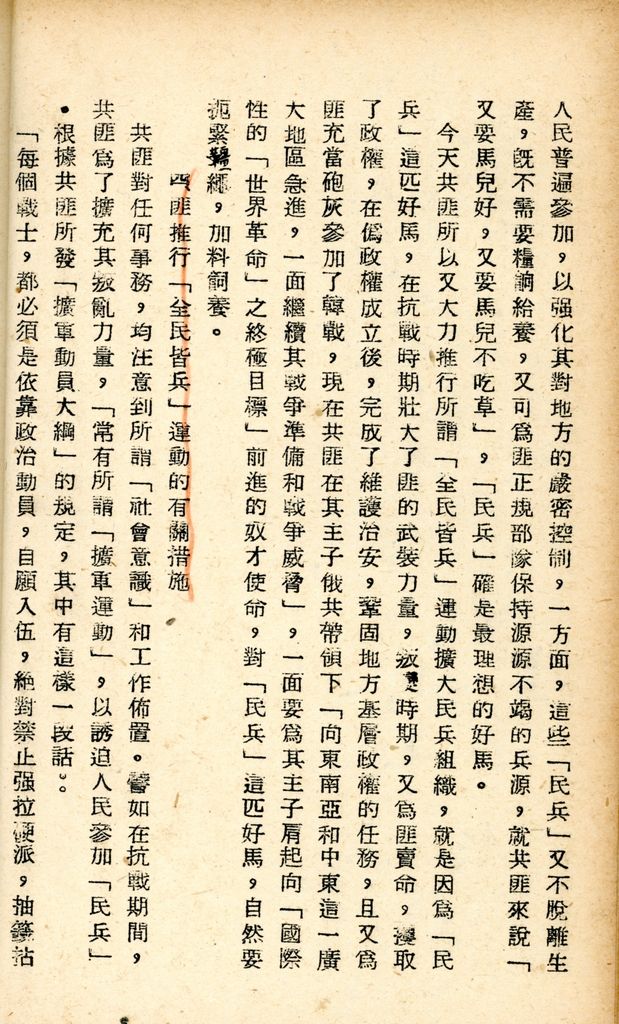 人民普遍參加，以强化其對地方的嚴密控制，一方面，這些「民兵」又不脫離生
產，旣不需要糧餉給養，又可爲匪正規部隊保持源源不竭的兵源，就共匪來說「
又要馬兒好，又要馬兒不吃草」，「民兵」確是最理想的好馬。
今天共匪所以又大力推行所謂「全民皆兵」運動擴大民兵組織，就是因爲「民
兵」這匹好馬，在抗戰時期壯大了匪的武裝力量，叛亂時期，又爲匪賣命，攫取
了政權，在僞政權成立後，完成了維護治安，鞏固地方基層政權的任務，且又爲
匪充當砲灰參加了韓戰，現在共匪在其主子俄共帶領下「向東南亞和中東這一廣
大地區急進，一面繼續其戰爭準備和戰爭威脅」，一面要爲其主子肩起向「國際
性的「世界革命」之終極目標」前進的奴才使命，對「民兵」這匹好馬，自然要
扼緊韁繩，加料飼養。
四匪推行「全民皆兵」運動的有關措施
共匪對任何事務，均注意到所謂「社會意識」和工作佈置。譬如在抗戰期間，
共匪爲了擴充其叛亂力量，「常有所謂「擴軍運動」，以誘迫人民參加「民兵」
。根據共匪所發「擴軍動員大綱」的規定，其中有這樣一段話。。
「每個戰士，都必須是依靠政治動員，自願入伍，絕對禁止强拉硬派，抽籤拈